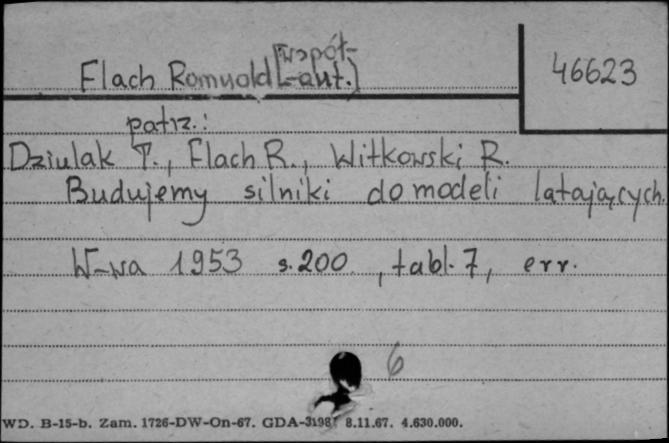 Flach Romuold [współ-
-aut.]
46623
patrz.:
Dziulak T., Flach R., Witkowski R.
Budujemy silniki do modeli latających.
W-wa 1953 s. 200, tabl. 7, err.
6
WD. B-15-b. Zam. 1726-DW-On-67. GDA-3198 8.11.67. 4.630.000.